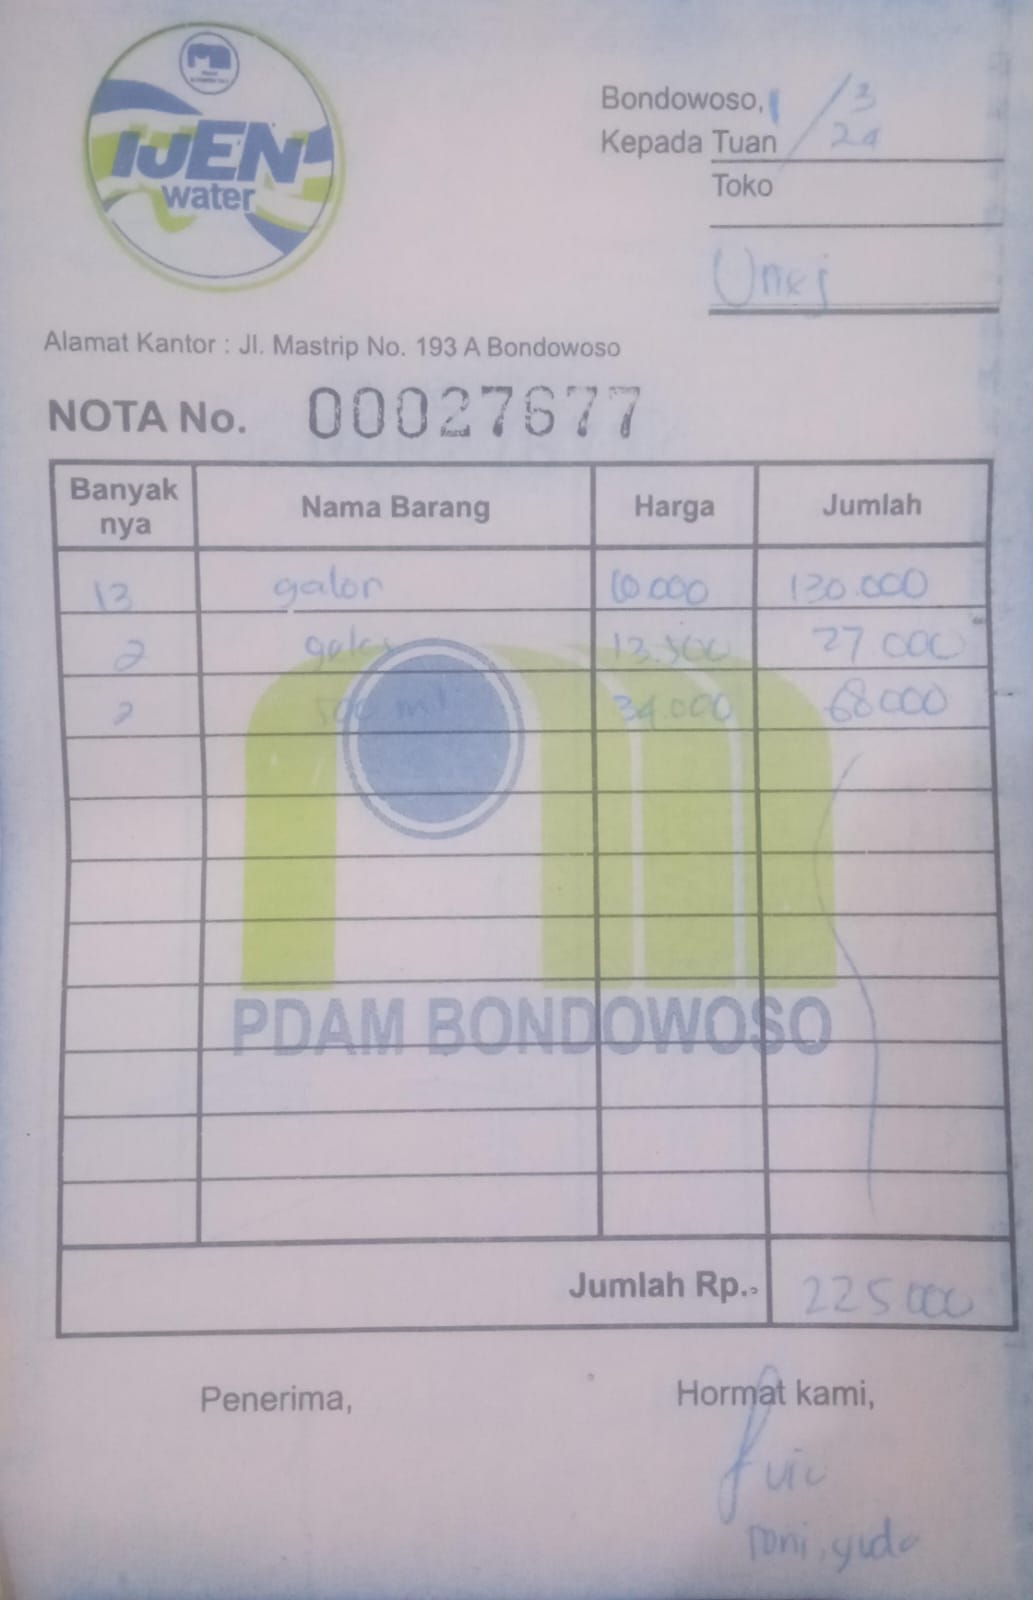 IJEN
water
Bondowoso, 1/3
24
Kepada Tuan
Toko
Unej
Alamat Kantor : Jl. Mastrip No. 193 A Bondowoso
NOTA No. 00027677
Banyak nya Nama Barang Harga Jumlah
13 galon 10.000 130.000
2 gelas 13.500 27.000
2 500 ml 34.000 68.000
PDAM BONDOWOSO
Jumlah Rp. 225.000
Penerima, Hormat kami,
roni, yuda